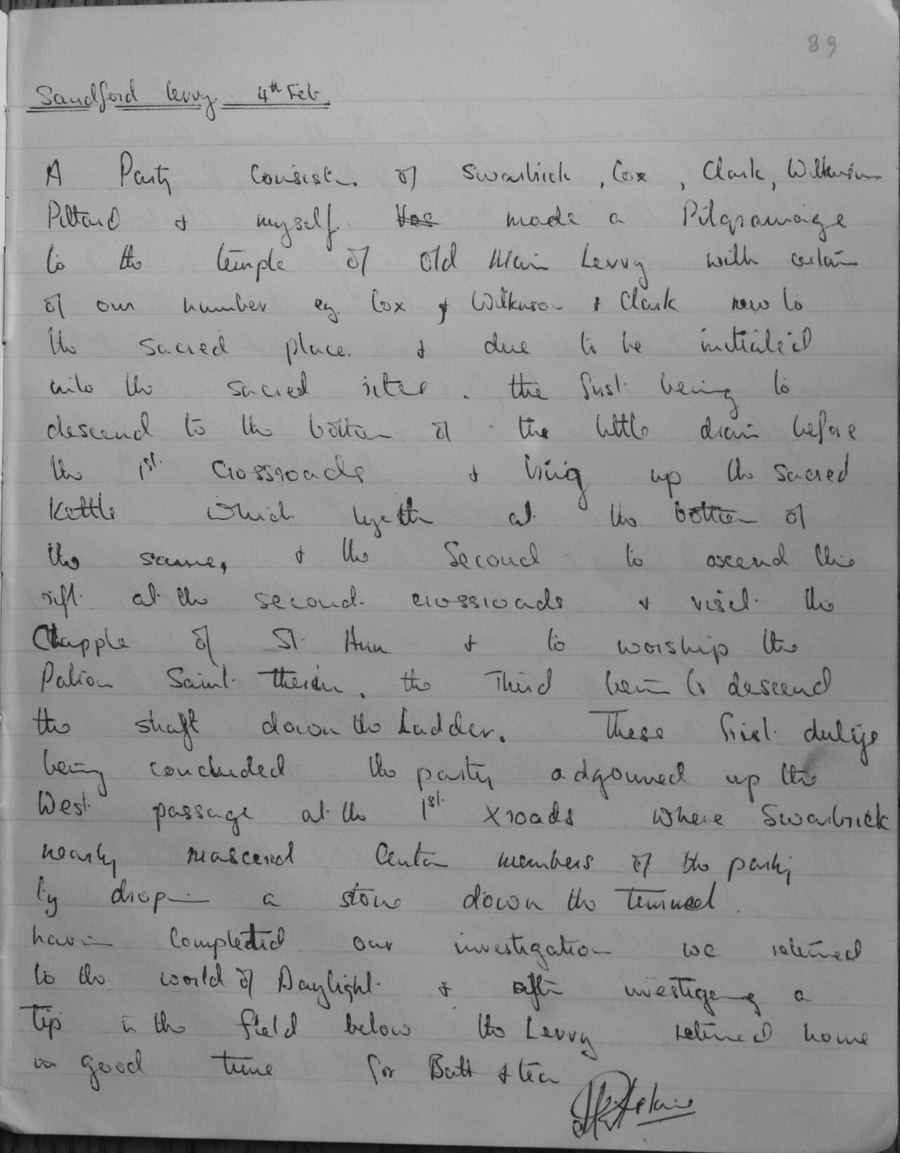 89
Sandford Levvy 4th Feb.
A Party Consist. of Swarbrick, Cox, Clark, Wilkinson
Pittard & myself made a Pilgramage
to the temple of Old Man Levvy with certain
of our number eg Cox & Wilkinson & Clark new to
the sacred place. & due to be initiated
into the sacred rites. the first being to
descend to the bottom of the little drain before
the 1st Crossroads & bring up the sacred
Kettle which lyeth at the bottom of
the same, & the Second to ascend the
rift at the second crossroads & visit the
Chapple of St. & to worship the
Patron Saint therein. the Third being to descend
the shaft down the Ladder. These first dutys
being concluded the party adgourned up the
West passage at the 1st Xroads where Swarbrick
nearly mascered certain members of the party
by dropin a stone down the Tunnel.
having Completed our investigation we returned
to the world of Daylight & after investigeng a
Tip in the field below the Levvy returned home
in good time for Bath & tea